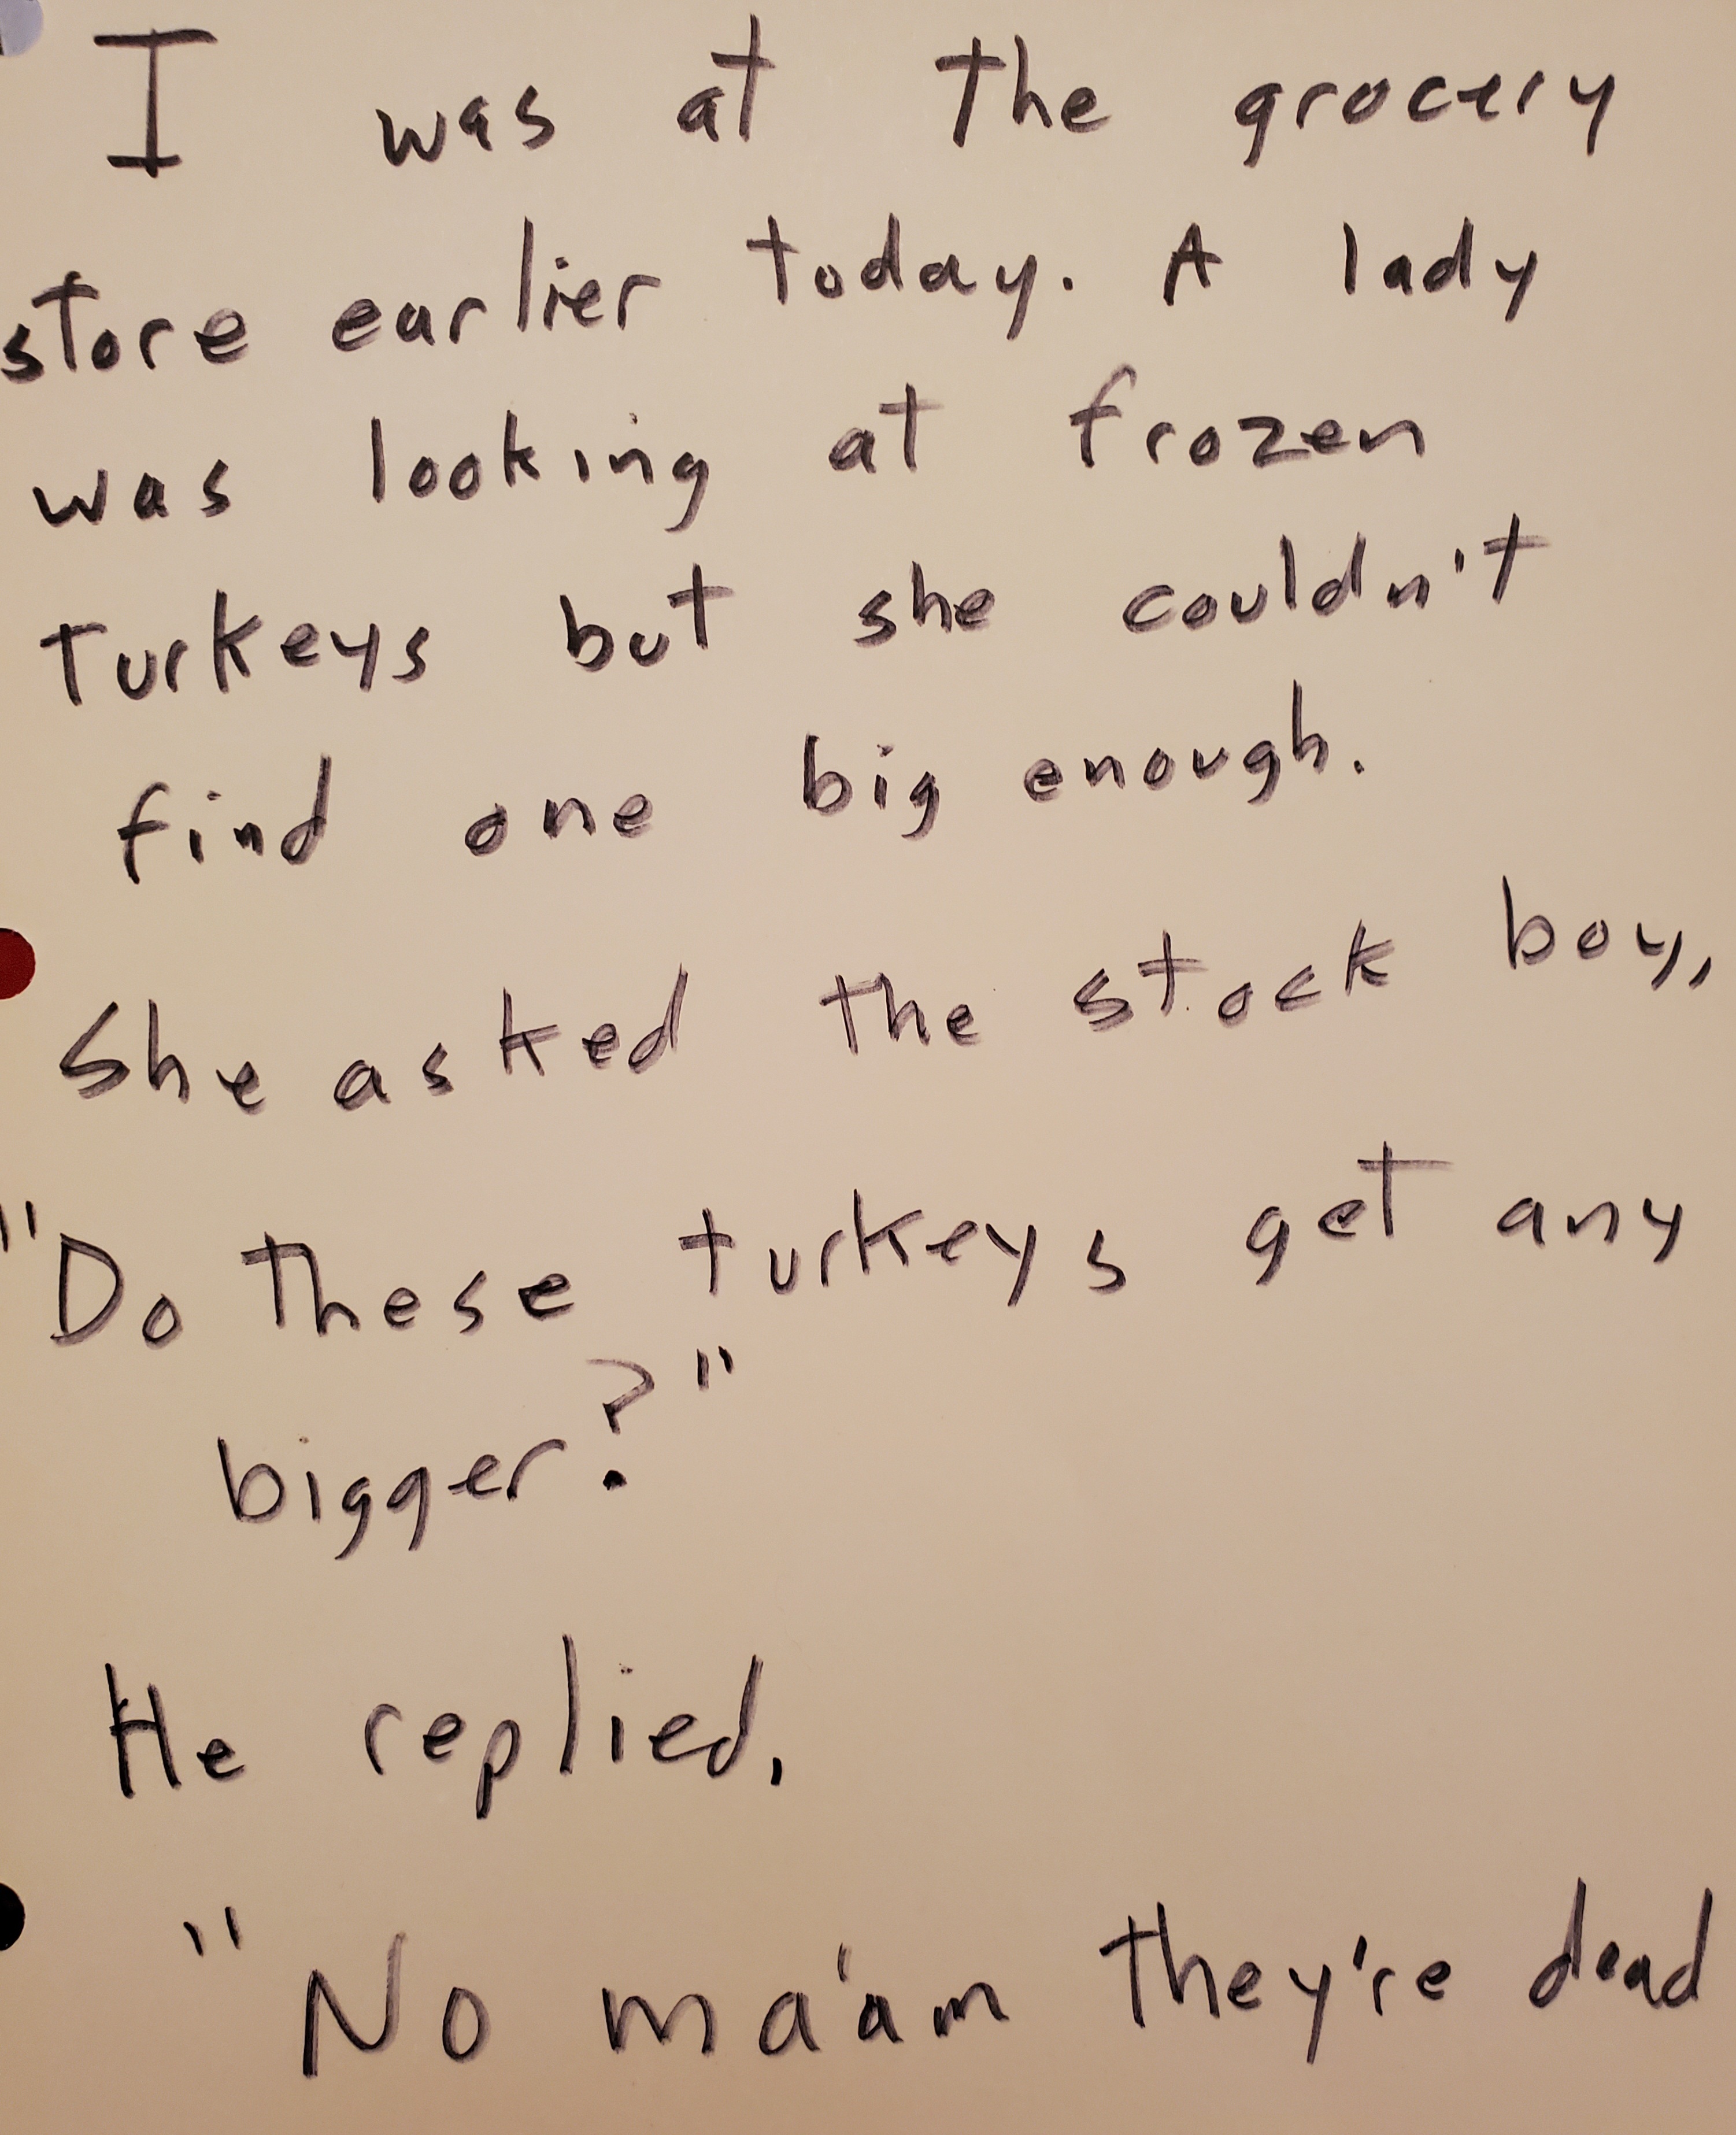 I was at the grocery
store earlier today. A lady
was looking at frozen
turkeys but she couldn't
find one big enough.
She asked the stock boy,
"Do these turkeys get any
bigger?"
He replied,
"No ma'am they're dead